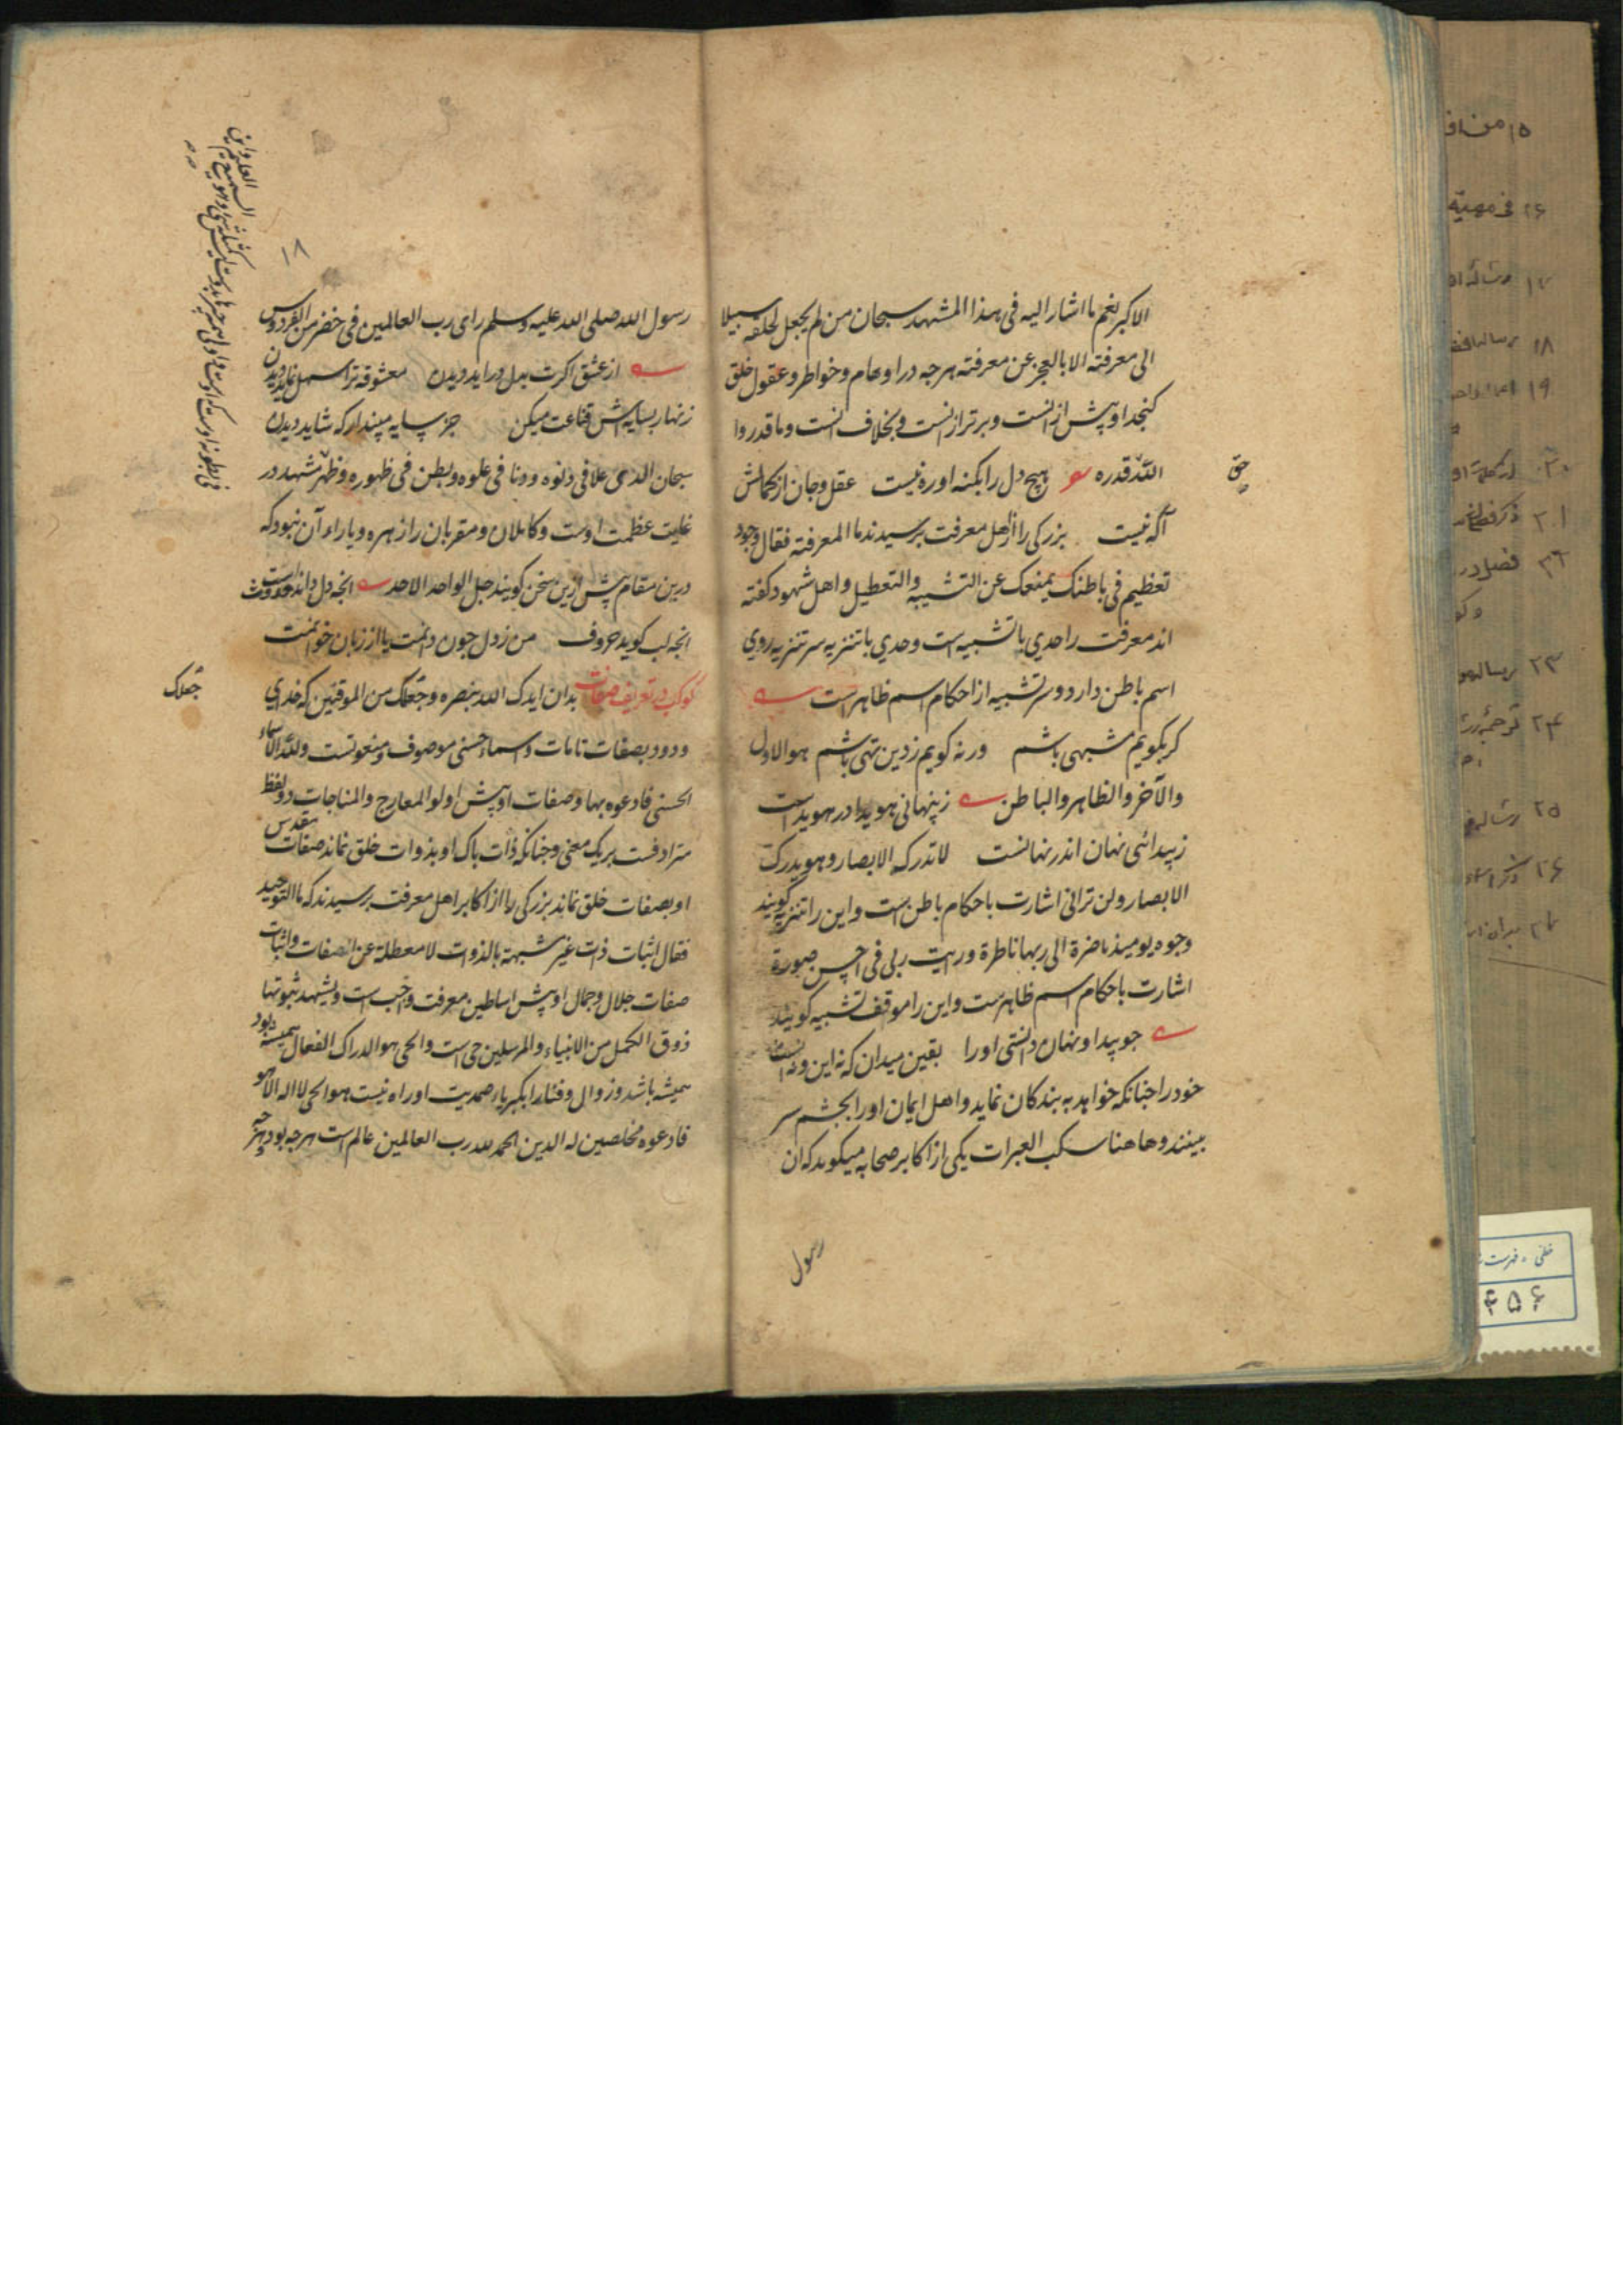 الاکبر نغم ما اشار الیه فی هذا المشهد سبحان من لم یجعل لخلقه سبیلا
الی معرفته الا بالعجز عن معرفته هرجه در اوهام و خواطر و عقول خلق
کنجد او پیش از انست و برتر از انست و بخلاف انست و ما قدروا
اللّه قدره هیچ دل را بکنه او ره نیست عقل و جان از کمالش
حق
آکه نیست بزرکی را از اهل معرفت پرسیدند ما المعرفة فقال وجود
تعظیم فی باطنک یمنعک عن التشبیه والتعطیل و اهل شهود کفته
اند معرفت را حدی با تشبیه است و حدی با تنزیه سر تنزیه روی
اسم باطن دارد و سر تشبیه از احکام اسم ظاهر است
کر بکویم مشبهی باشم ور نه کویم ز دین تهی باشم هو الاول
والآخر والظاهر والباطن ز پنهانی هویدا در هویداست
ز پیدائی نهان اندر نهانست لا تدرکه الابصار و هو یدرک
الابصار و لن ترانی اشارت باحکام باطن است و این را تنزیه کویند
وجوه یومیذ ناضرة الی ربها ناظرة و رایت ربی فی احسن صورة
اشارت باحکام اسم ظاهرست و این را موقف تشبیه کویند
جو پیدا و نهان دانستی او را یقین میدان که نه این و نه انست
خود را جنانکه خواهد به بندکان نماید و اهل ایمان او را بجشم سر
ببینند و هاهنا سکب العبرات یکی از اکابر صحابه میکوید که ان
رسول
۱۸
رسول الله صلی الله علیه وسلم رای رب العالمین فی خضر من الفردوس
از عشق اکرت بدل در اید دیدن معشوقه ترا سهل نماید دیدن
زنهار بسایه اش قناعت میکن جز سایه مپندار که شاید دیدن
سبحان الذی علا فی دنوه و دنا فی علوه و بطن فی ظهوره و ظهر مشهد در
غایت عظمت اوست و کاملان و مقربان را زهره و یاراء آن نبود که
درین مقام پیش ازین سخن کویند جل الواحد الاحد انجه دل داند حدوث است
انجه لب کوید حروف من ز دل جون دانمت یا از زبان خوانمت
کوکب در تعریف صفات بدان ایدک الله بنصره و جعلک من الموقنین که خدای
جعلک
ودود بصفات تامات و اسماء حسنی موصوف و منعوتست ولله الاسماء
الحسنی فادعوه بها و صفات او پیش اولو المعارج والمناجات دو لفظ
مترادفست بر یک معنی و جنانکه ذات پاک او بذوات خلق نماند صفات مقدس
او بصفات خلق نماند بزرکی را از اکابر اهل معرفت پرسیدند که ما التوحید
فقال اثبات ذات غیر مشبهة بالذوات لا معطلة عن الصفات و اثبات
صفات جلال و جمال او پیش اساطین معرفت واجب است و یشهد ثبوتها
ذوق الکمل من الانبیاء والمرسلین حی است والحی هو الدراک الفعال همیشه بود
همیشه باشد و زوال و فنا را بکبریاء صمدیت او راه نیست هو الحی لا اله الا هو
فادعوه مخلصین له الدین الحمد لله رب العالمین عالم است هرجه بود و هرجه
۱۷
۱۸
۱۹
۲۳
۲۵
۲۶
۴۵۶